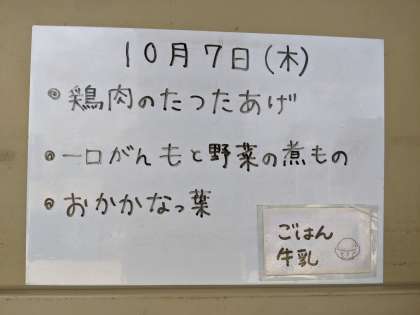 10月7日(木)
◎鶏肉のたつたあげ
◎一口がんもと野菜の煮もの
◎おかかなっ葉
ごはん
牛乳